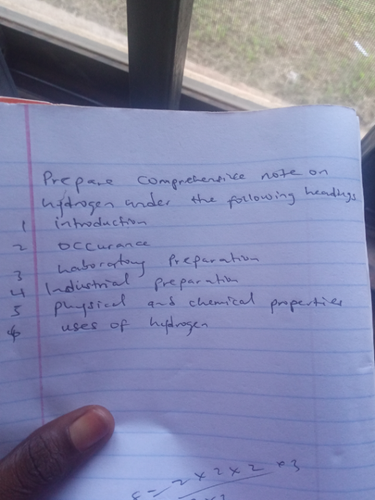 Prepare comprehensive note on
hydrogen under the following headings
1 introduction
2 occurance
3 Laboratory Preparation
4 Industrial preparation
5 physical and chemical properties
6 uses of hydrogen
2 x 2 x 2 x 3